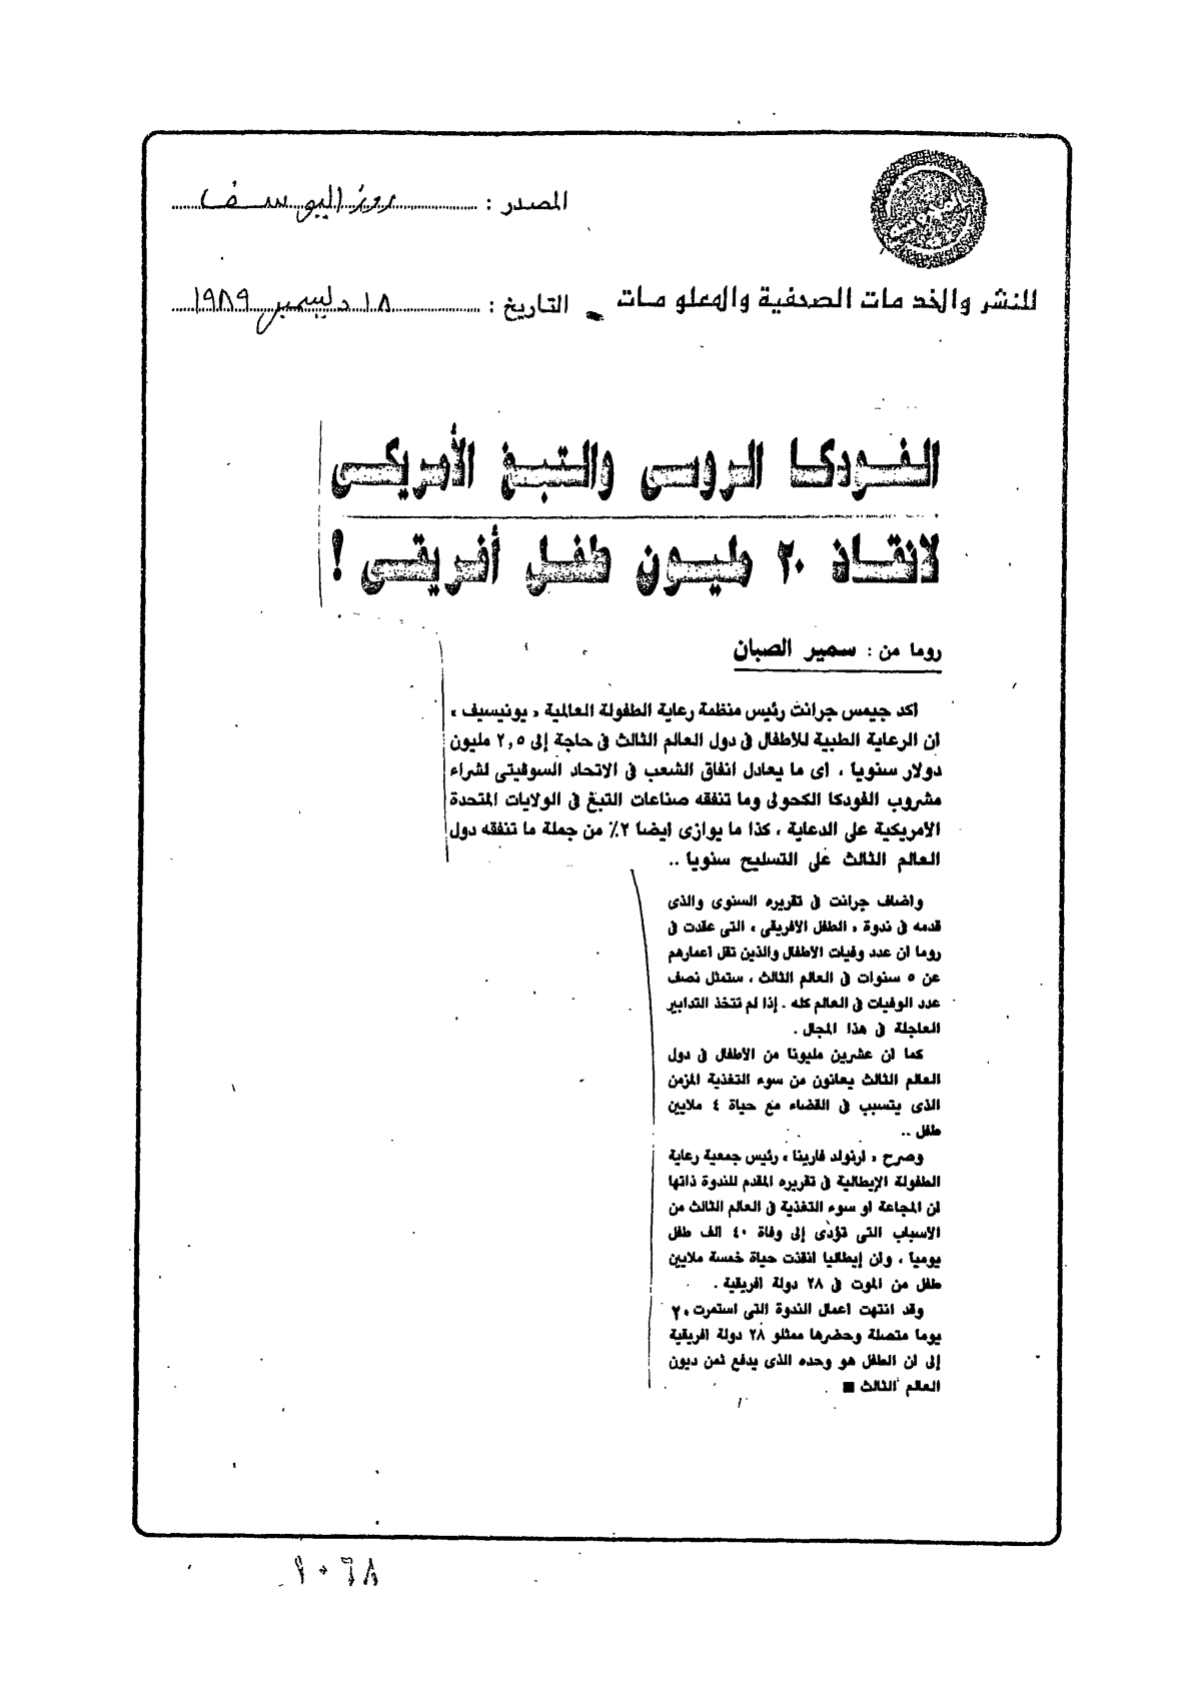 المصدر : روز اليوسف
للنشر والخدمات الصحفية والمعلومات
التاريخ : ١٨ ديسمبر ١٩٨٩
الفودكا الروسى والتبغ الأمريكى
لانقاذ ٢٠ مليون طفل أفريقى !
روما من : سمير الصبان
اكد جيمس جرانت رئيس منظمة رعاية الطفولة العالمية « يونيسيف »
ان الرعاية الطبية للأطفال فى دول العالم الثالث فى حاجة إلى ٢,٥ مليون
دولار سنويا ، اى ما يعادل انفاق الشعب فى الاتحاد السوفيتى لشراء
مشروب الفودكا الكحولى وما تنفقه صناعات التبغ فى الولايات المتحدة
الأمريكية على الدعاية ، كذا ما يوازى ايضا ٢٪ من جملة ما تنفقه دول
العالم الثالث على التسليح سنويا ..
واضاف جرانت فى تقريره السنوى والذى
قدمه فى ندوة « الطفل الافريقى » التى عقدت فى
روما ان عدد وفيات الأطفال والذين تقل اعمارهم
عن ٥ سنوات فى العالم الثالث ، ستمثل نصف
عدد الوفيات فى العالم كله . إذا لم تتخذ التدابير
العاجلة فى هذا المجال .
كما ان عشرين مليونا من الأطفال فى دول
العالم الثالث يعانون من سوء التغذية المزمن
الذى يتسبب فى القضاء مع حياة ٤ ملايين
طفل ..
وصرح « ارنولد فارينا » رئيس جمعية رعاية
الطفولة الإيطالية فى تقريره المقدم للندوة ذاتها
ان المجاعة او سوء التغذية فى العالم الثالث من
الأسباب التى تؤدى إلى وفاة ٤٠ الف طفل
يوميا ، وان إيطاليا انقذت حياة خمسة ملايين
طفل من الموت فى ٢٨ دولة افريقية .
وقد انتهت اعمال الندوة التى استمرت ٢٠
يوما متصلة وحضرها ممثلو ٢٨ دولة افريقية
إلى ان الطفل هو وحده الذى يدفع ثمن ديون
العالم الثالث ■